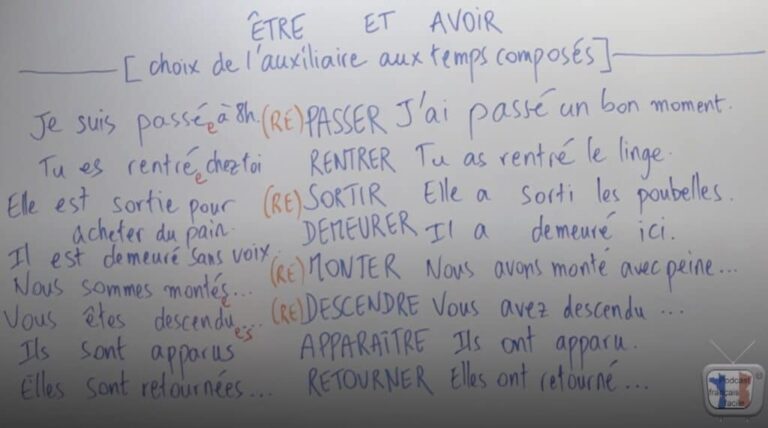 ÊTRE ET AVOIR
[choix de l'auxiliaire aux temps composés]
Je suis passé e à 8h. (RE)PASSER J'ai passé un bon moment.
Tu es rentré e chez toi RENTRER Tu as rentré le linge.
Elle est sortie pour (RE)SORTIR Elle a sorti les poubelles.
acheter du pain. DEMEURER Il a demeuré ici.
Il est demeuré sans voix.
Nous sommes montés e... (RE)MONTER Nous avons monté avec peine...
Vous êtes descendu es... (RE)DESCENDRE Vous avez descendu ...
Ils sont apparus APPARAÎTRE Ils ont apparu.
Elles sont retournées... RETOURNER Elles ont retourné...
Podcast
français
facile